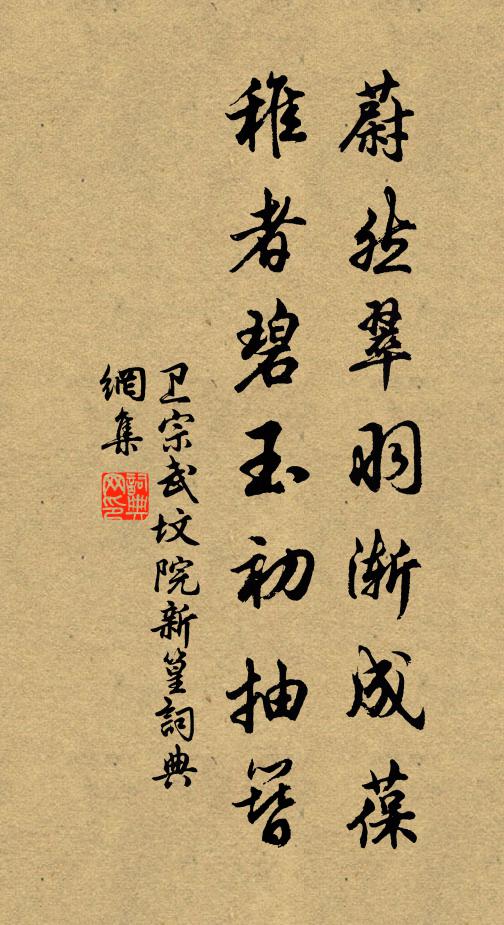 蔚然翠羽渐成葆
稚者碧玉初抽簪
卫宗武坟院新篁詞典
網集
詞典
网印